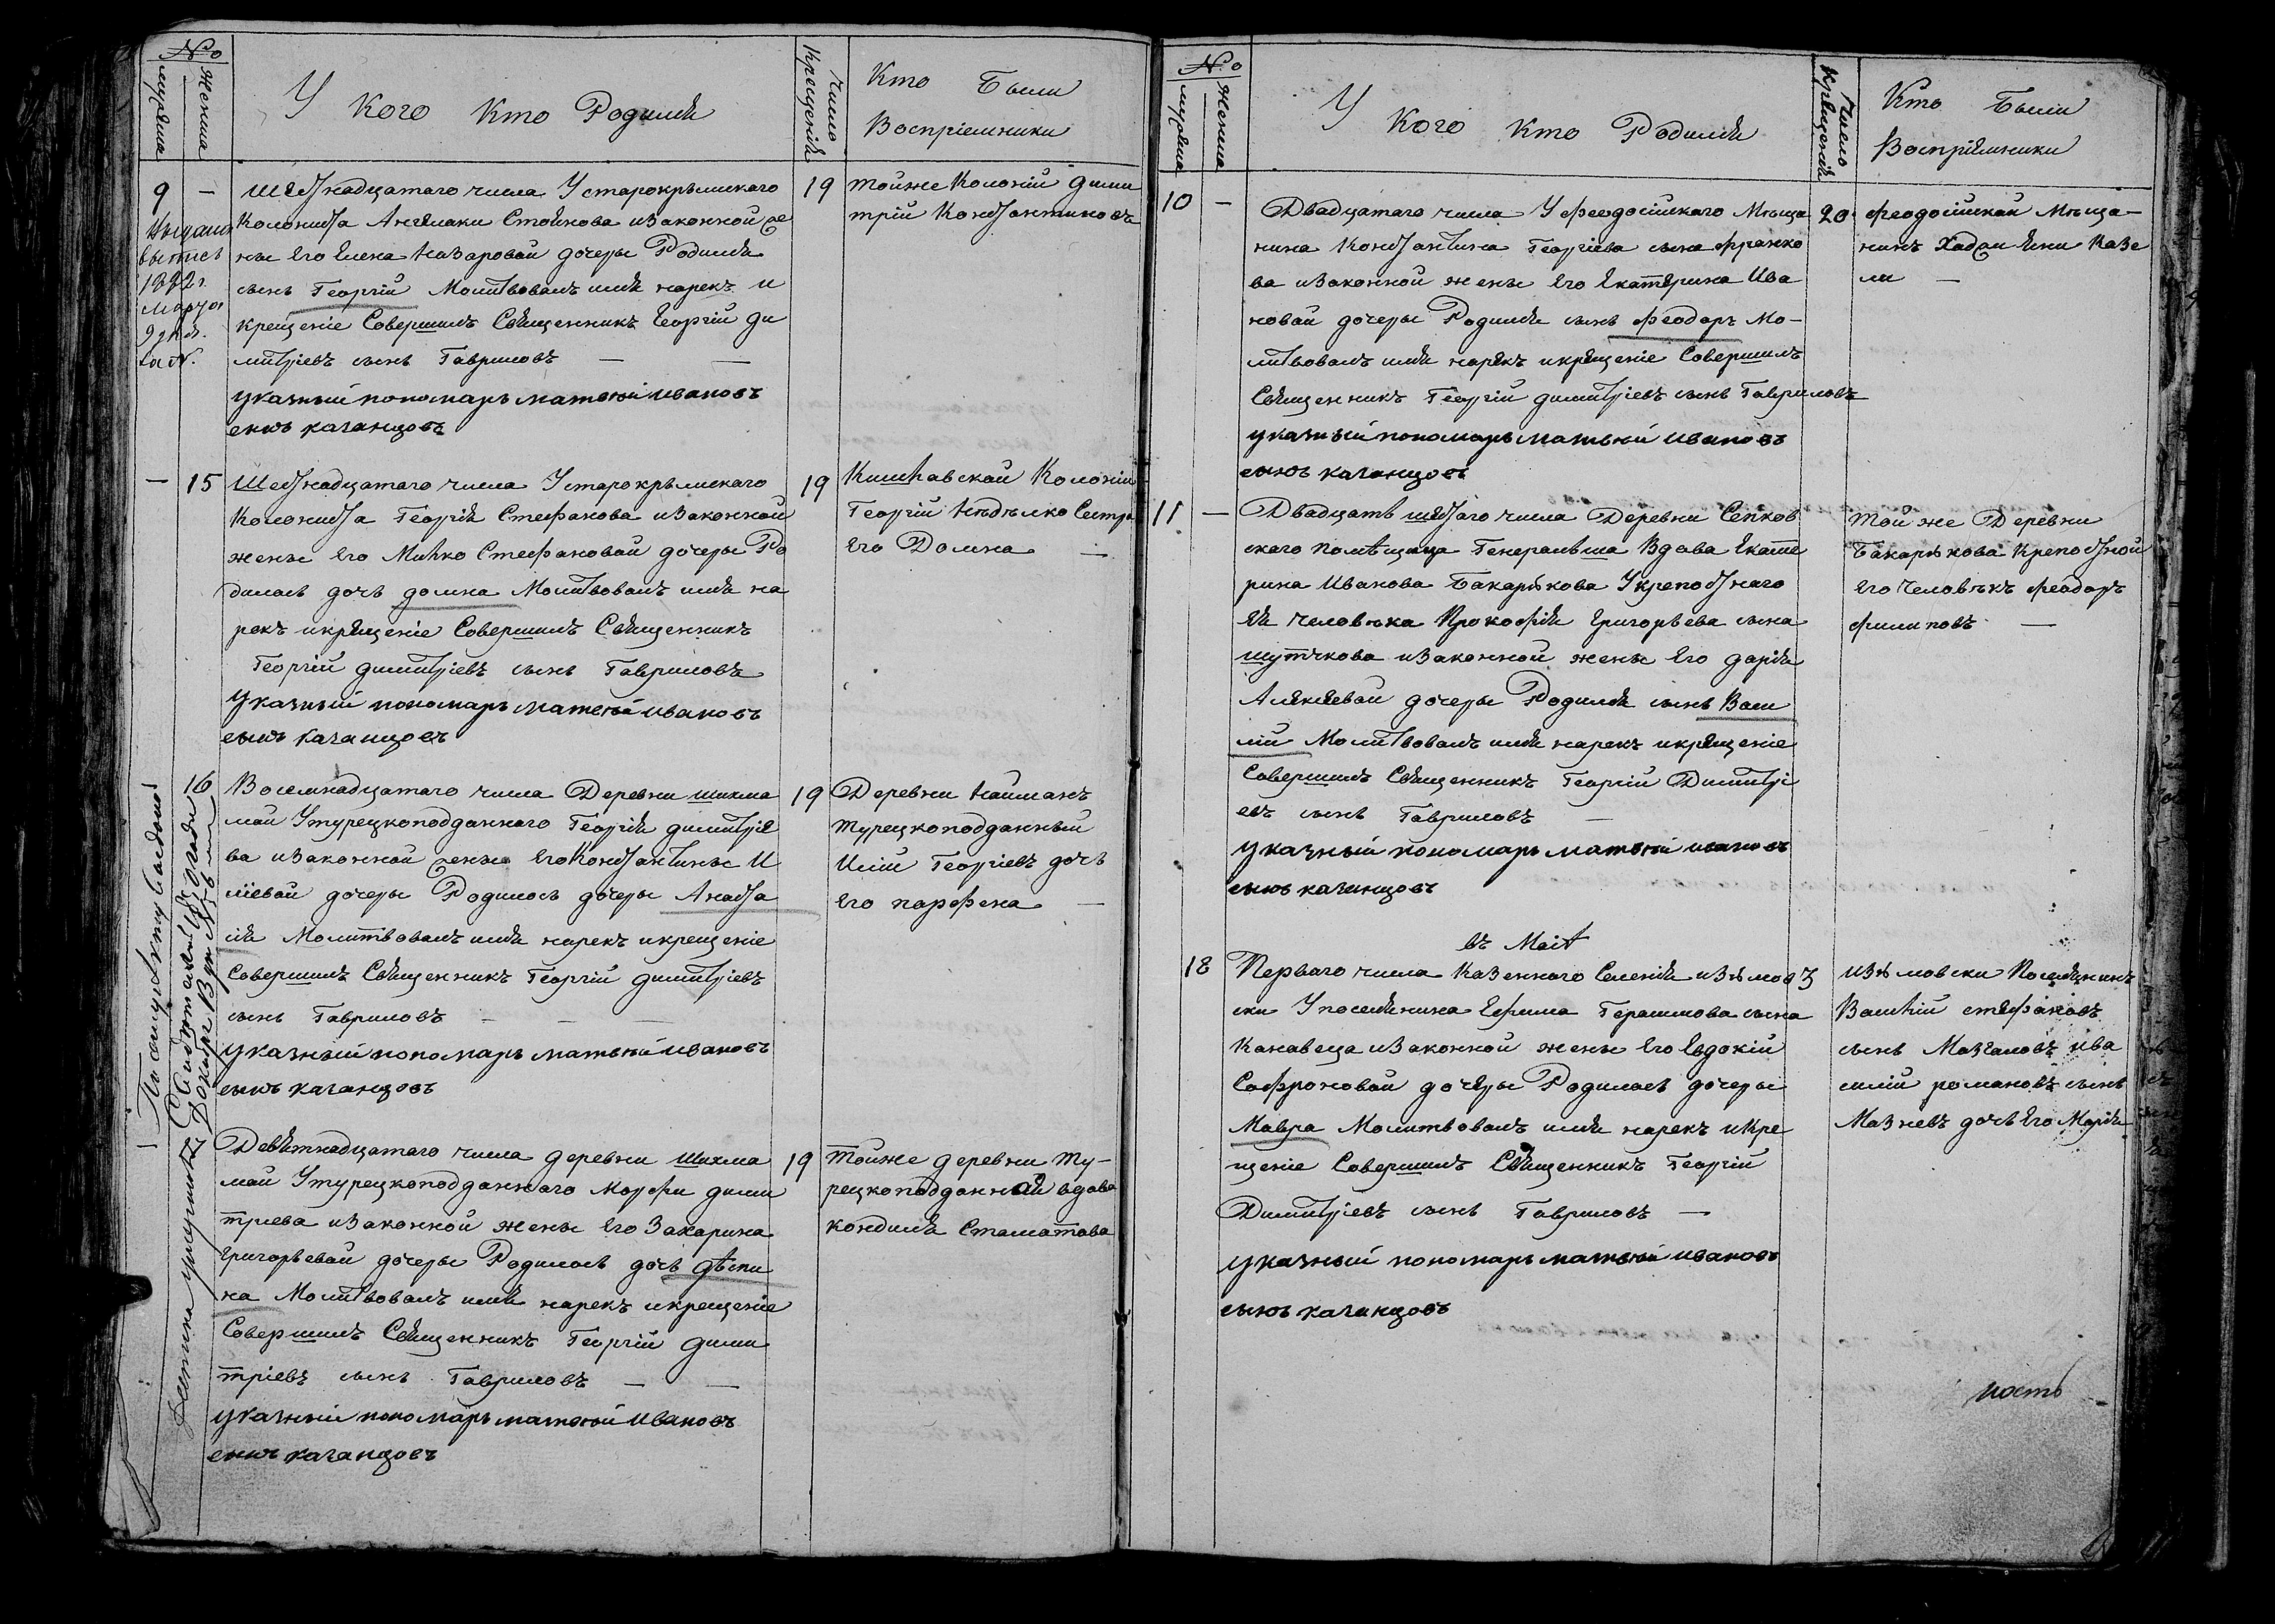 №
мужеска
женска
У кого кто Родился
число
крещенія
Кто были
Воспріемники
9 —
Шестнадцатаго числа У старокрымскаго
Колониста Ангелаки Стоянова изаконной же
ны его Елена Назаровой дочеры Родился
сынъ Георгій Молитвовалъ имя нарекъ и
крещеніе Совершилъ Священникъ Георгій ди
митріевъ сынъ Гавриловъ — —
указный пономарь матвѣй ивановъ
сынъ каганцовъ
19
тойже Колоніи дими
трій Константиновъ
1882 г.
марта
9 дня
за №.
— 15
Шестнадцатаго числа У старокрымскаго
Колониста Георгія Стефанова изаконной
жены его Милко Стефановой дочеры Ро
дилась дочь домна Молитвовалъ имя на
рекъ икрещеніе Совершилъ Священникъ
Георгій димитріевъ сынъ Гавриловъ
указный пономарь матвѣй ивановъ
сынъ каганцовъ
19
Кишлавской Колоніи
Георгій Недѣлко Сестра
его Домна —
16
Восемнадцатаго числа Деревни шихма
май У турецкоподданнаго Георгія димитріе
ва изаконной жены его Константины И
ліевой дочеры Родилось дочеры Анаста
сія Молитвовалъ имя нарекъ икрещеніе
Совершилъ Священникъ Георгій димитріевъ
сынъ Гавриловъ — — —
указный пономарь матвѣй ивановъ
сынъ каганцовъ
19
Деревни Найманъ
турецкоподданный
Илій Георгіевъ дочь
его парфена —
Девятнадцатаго числа деревни Шихма
май У турецкоподданнаго Морфи дими
тріева изаконной жены его Захарина
Григорьевой дочеры Родилось дочь дѣспи
на Молитвовалъ имя нарекъ икрещеніе
Совершилъ Священникъ Георгій дими
тріевъ сынъ Гавриловъ — —
указный пономарь матвѣй ивановъ
сынъ каганцовъ
19
тойже деревни ту-
рецкоподданная вдова
кондиля Стаматова
№
мужеска
женска
У кого кто Родился
число
крещенія
Кто были
Воспріемники
10 —
Двадцатаго числа У феодосійскаго Мѣща
нина Константина Георгіева сына франко
ва изаконной жены его Екатерина Ива
новой дочеры Родился сынъ феодоръ Мо-
литвовалъ имя нарекъ икрещеніе Совершилъ
Священникъ Георгій димитріевъ сынъ Гавриловъ
указный пономарь матвѣй ивановъ
сынъ каганцовъ
20
феодосійскай Мѣща-
нинъ Хаджи Яни Казе
ли —
11 —
Двадцать шестаго числа Деревни Сепков
скаго помѣщица Генеральша Вдова Екате
рина Иванова Бакарюкова Укрепостнаго
Ея человѣка Прокофія Григорьева сына
шутѣкова изаконной жены его дарія
Алексеевай дочеры Родился сынъ Васи
лій Молитвовалъ имя нарекъ икрещеніе
Совершилъ Священникъ Георгій Димитрі
евъ сынъ Гавриловъ —
указный пономарь матвѣй ивановъ
сынъ каганцовъ
Той же Деревни
Бакарюкова Крепостной
его человѣкъ феодоръ
филиповъ —
въ Маіѣ
18
Перваго числа Казеннаго Селенія изюмов
ски У поселянина Ефима Герасимова сына
Канавеца изаконной жены его Евдокіи
Софроновай дочеры Родилось дочеры
Мавра Молитвовалъ имя нарекъ икре
щеніе Совершилъ Священникъ Георгій
Димитріевъ сынъ Гавриловъ —
указный пономарь матвѣй ивановъ
сынъ каганцовъ
3
изюмовски Поселянинъ
Василій стефановъ
сынъ Мозгаловъ ива
силій романовъ сынъ
Мазневъ дочь его Марія